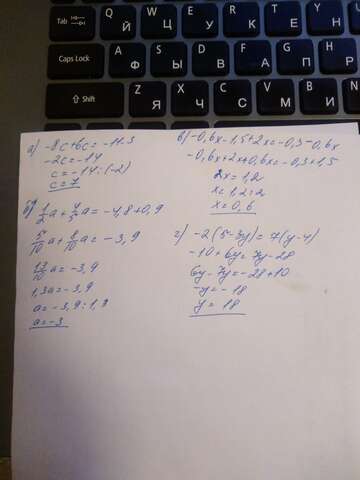 Tab
Q Й W Ц E У R К T Е Y Н
Caps Lock A Ф S Ы D В F А G П H Р
⇧ Shift Z Я X Ч C С V М B И
а) -8c+6c= -11-3
-2c=-14
c=-14:(-2)
c=7
б) 1/2a+4/5a=-4,8+0,9
5/10a+8/10a=-3,9
13/10a=-3,9
1,3a=-3,9
a=-3,9:1,3
a=-3
в) -0,6x-1,5+2x=-0,3-0,6x
-0,6x+2x+0,6x=-0,3+1,5
2x=1,2
x=1,2:2
x=0,6
г) -2(5-3y)=7(y-4)
-10+6y=7y-28
6y-7y=-28+10
-y=-18
y=18